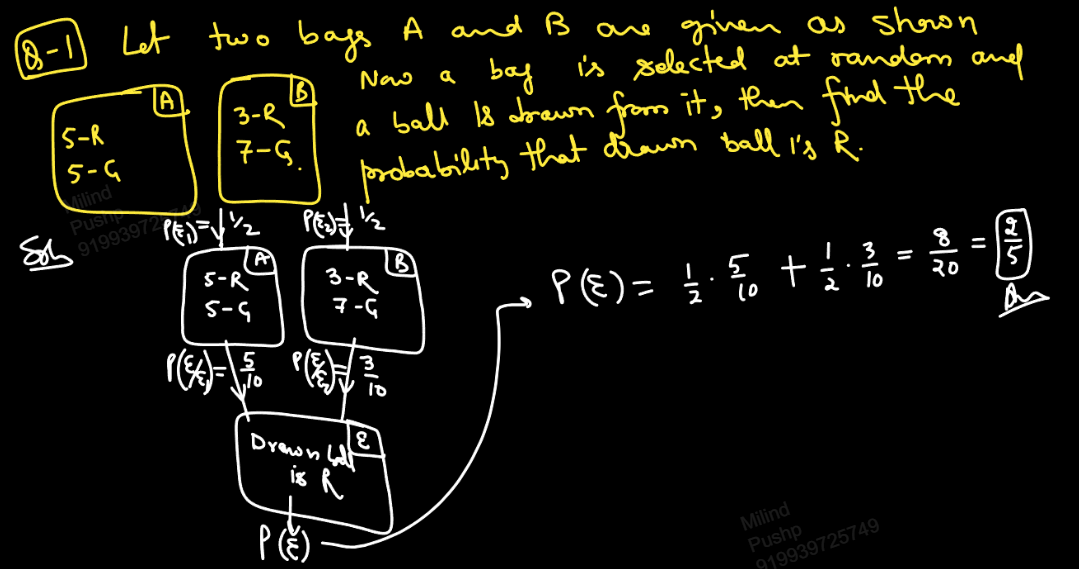 Q-1 Let two bags A and B are given as shown
Now a bag is selected at random and
a ball is drawn from it, then find the
probability that drawn ball is R.
A
5-R
5-G
B
3-R
7-G.
Soln
P(E₁)= 1/2
P(E₂)= 1/2
A
5-R
5-G
B
3-R
7-G
P(E/E₁)= 5/10
P(E/E₂)= 3/10
E
Drawn ball
is R
P(E)
P(E) = 1/2 · 5/10 + 1/2 · 3/10 = 8/20 = 2/5
Ans
Milind
Pushp
919939725749
Milind
Pushp
919939725749